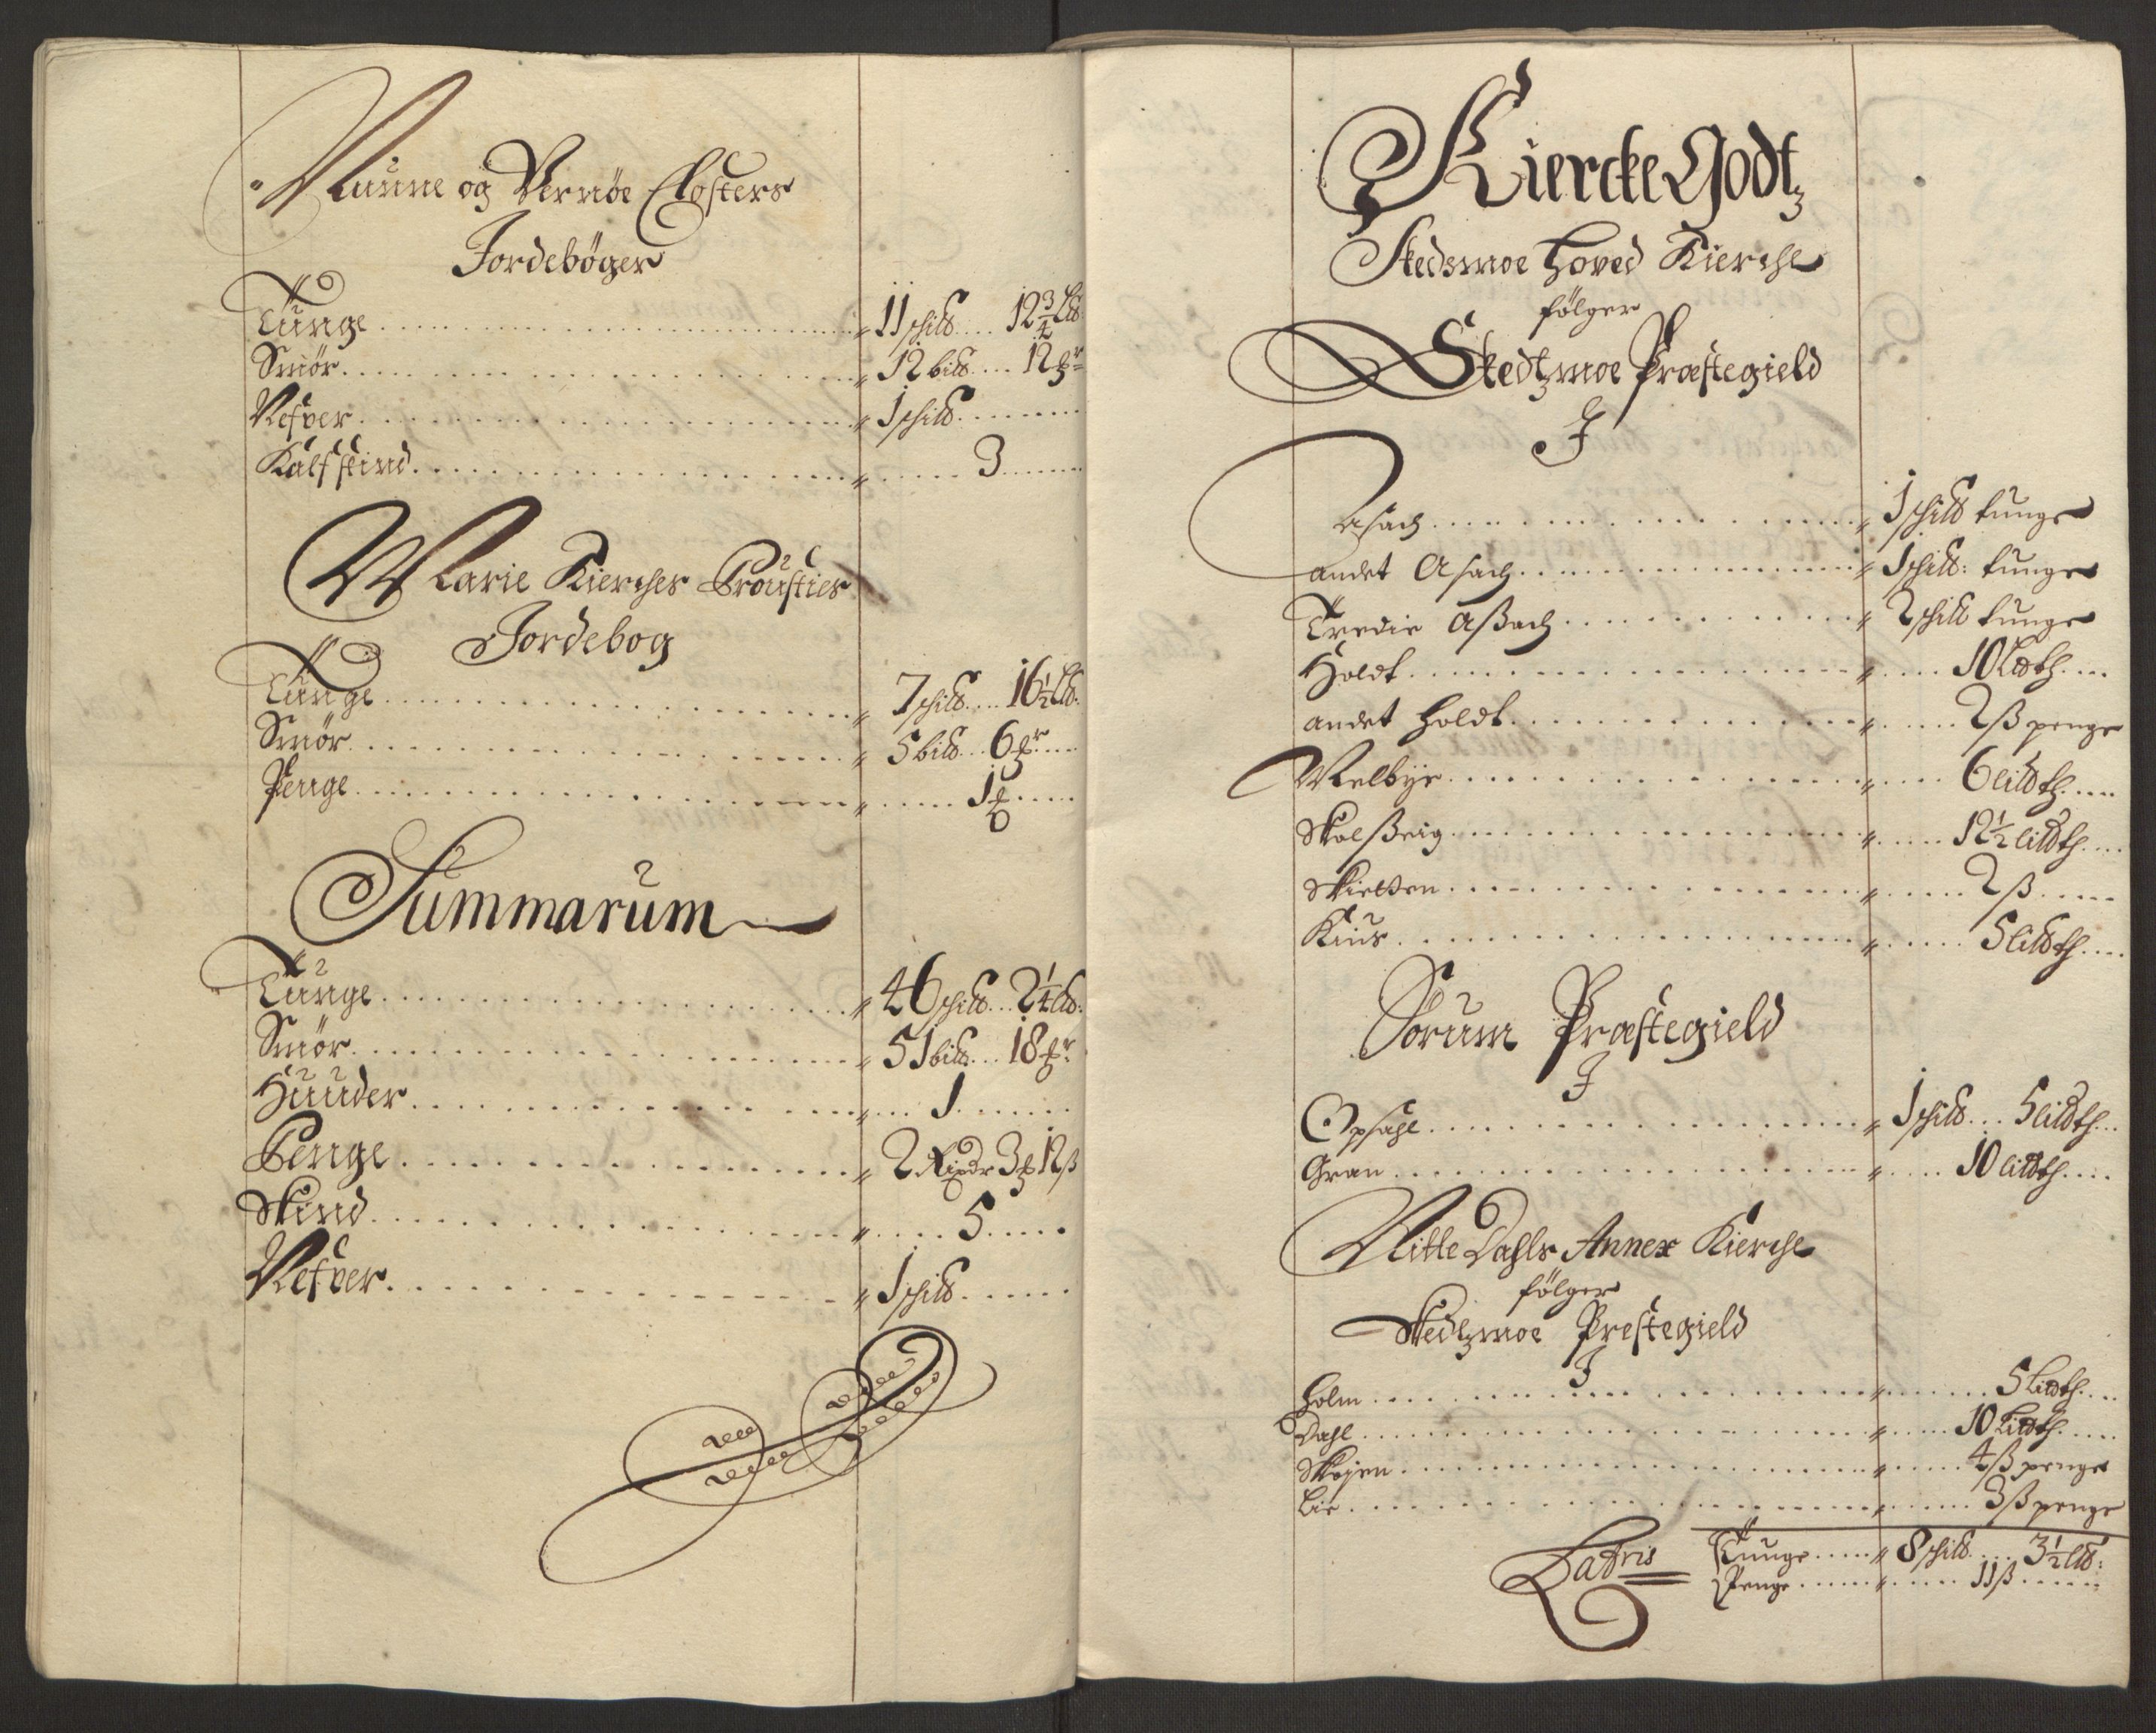 Nunne og Vernöe Closters
Jordebøger
Tünge " 11 schilb 12 3/4 Lb:
Smör " 12 bilb 12 pr
Nefver " 1 schilb
Kalfskind " 3
Marie Kierches Prousties
Jordebog
Tünge " 7 schilb 16 1/2 Lb:
Smör " 5 bilb 6 pr
Penge " 1
Summarum
Tünge " 46 schilb 2 1/4 Lb:
Smör " 51 bilb 18 pr
Huuder " 1
Penge " 2 Rixdr 3 12 ß
Skind " 5
Nefver " 1 schilb
Kiercke Godtz
Skedsmoe Hoved Kierche
følger
Skedtzmoe Præstegield
I
Asach " 1 schilb tunge
andet Asach " 1 schilb: tunge
Tredie Aßach " 2 schilb tunge
Holdt " 10 Lidth
andet Holdt " 2 ß penge
Melbye " 6 lidth
Skolßeig " 12 1/2 lidth
Skietten " 2 ß
Kius " 5 lidth
Sorum Præstegield
I
Opsahl " 1 schilb 5 lidth
Gran " 10 lidth
Nitte Dahls Annex Kierche
følger
Skedtzmoe Prestegield
I
Holm " 5 Lidth
Dahl " 10 Lidth
Skøyen " 4 ß penge
Lie " 3 ß penge
Latris Tunge " 8 schilb 3 1/2 Lb:
Penge " 11 ß